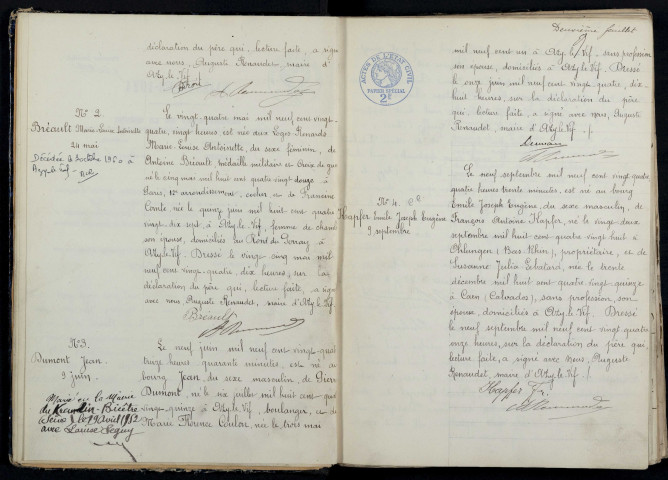 déclaration du père qui, lecture faite, a signé
avec nous, Auguste Renaudet, maire d'
Azy-le-Vif.
N° 2
Bréault Marie Louise Antoinette
24 mai
Décédée
Le vingt-quatre mai mil neuf cent vingt-
quatre, vingt heures, est née aux Loges Renards
Marie Louise Antoinette, du sexe féminin, de
Antoine Bréault, médaille militaire et Croix de guerre
né le cinq mai mil huit cent quatre vingt douze à
Paris, arrondissement, et de Francine
Comte, née le quinze juin mil huit cent quatre
vingt dix sept à Azy-le-Vif, femme de chambre
son épouse, domiciliés au
Azy-le-Vif. Dressé le vingt cinq mai mil
neuf cent vingt-quatre, dix heures, sur la
déclaration du père qui, lecture faite, a signé
avec nous, Auguste Renaudet, maire d'Azy-le-Vif.
Bréault
N° 3.
Dumont Jean.
9 juin.
Marié à la Mairie
du Kremlin-Bicêtre
(Seine) le 19 Août 1952
avec Louise
Le neuf juin mil neuf cent vingt-quatre
heures quarante minutes, est né au
bourg Jean, du sexe masculin, de Pierre
Dumont, né le six juillet mil huit cent quatre
vingt-quinze à Azy-le-Vif, boulanger, et de
Marie Florence Coulon, née le trois mai
Deuxième feuillet
mil neuf cent un à Azy-le-Vif, sans profession
son épouse, domiciliés à Azy-le-Vif. Dressé
le onze juin mil neuf cent vingt-quatre, dix-
huit heures, sur la déclaration du père
qui, lecture faite, a signé avec nous, Auguste
Renaudet, maire d'Azy-le-Vif.
Dumont
ACTES DE L'ETAT CIVIL
PAPIER SPECIAL
2F
N° 4.
Hapfer Emile Joseph Eugène
9 septembre
Le neuf septembre mil neuf cent vingt-quatre
quatre heures trente minutes, est né au bourg
Emile Joseph Eugène, du sexe masculin, de
François Antoine Hapfer, né le vingt-deux
septembre mil huit cent quatre vingt huit à
Ohlungen (Bas-Rhin), propriétaire, et de
Susanne Julia Lebutard, née le trente
décembre mil huit cent quatre vingt-quinze
à Caen (Calvados), sans profession, son
épouse, domiciliés à Azy-le-Vif. Dressé
le neuf septembre mil neuf cent vingt-quatre
onze heures, sur la déclaration du père qui,
lecture faite, a signé avec nous, Auguste
Renaudet, maire d'Azy-le-Vif.
Hapfer Fr.